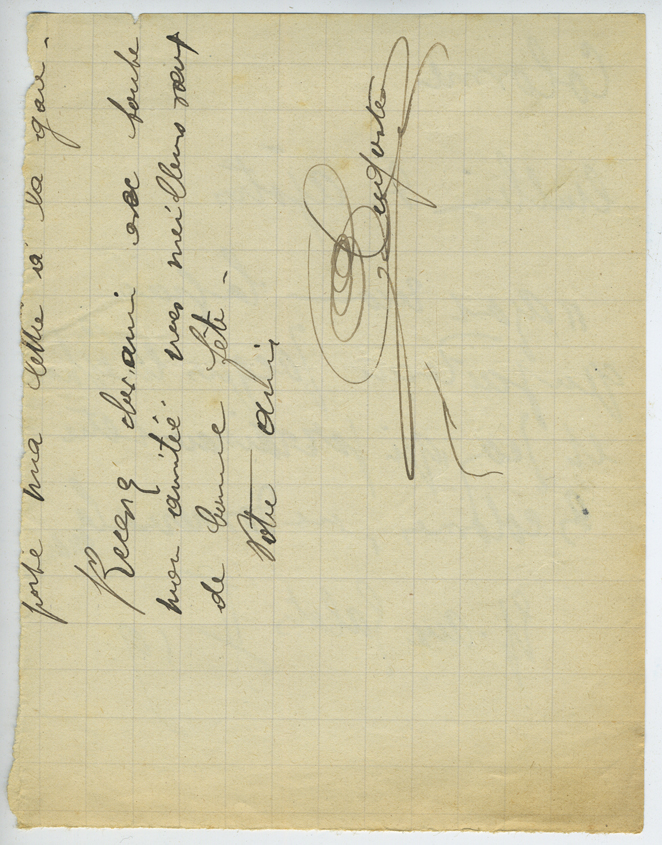 porte ma lettre à la gare -
Recevez cher ami avec toute
mon amitié mes meilleurs vœux
de bonne fête -
Votre ami